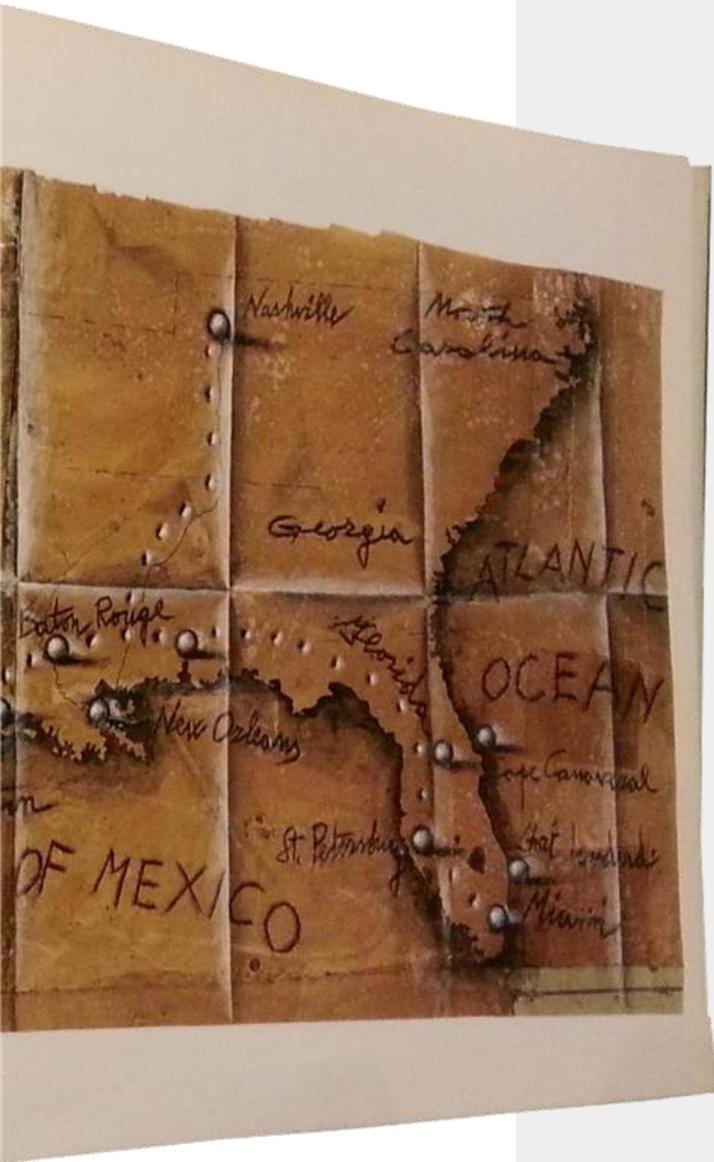 Nashville
North
Carolina
Georgia
ATLANTIC
OCEAN
Baton Rouge
Florida
New Orleans
Cape Canaveral
St. Petersburg
OF MEXICO
Miami